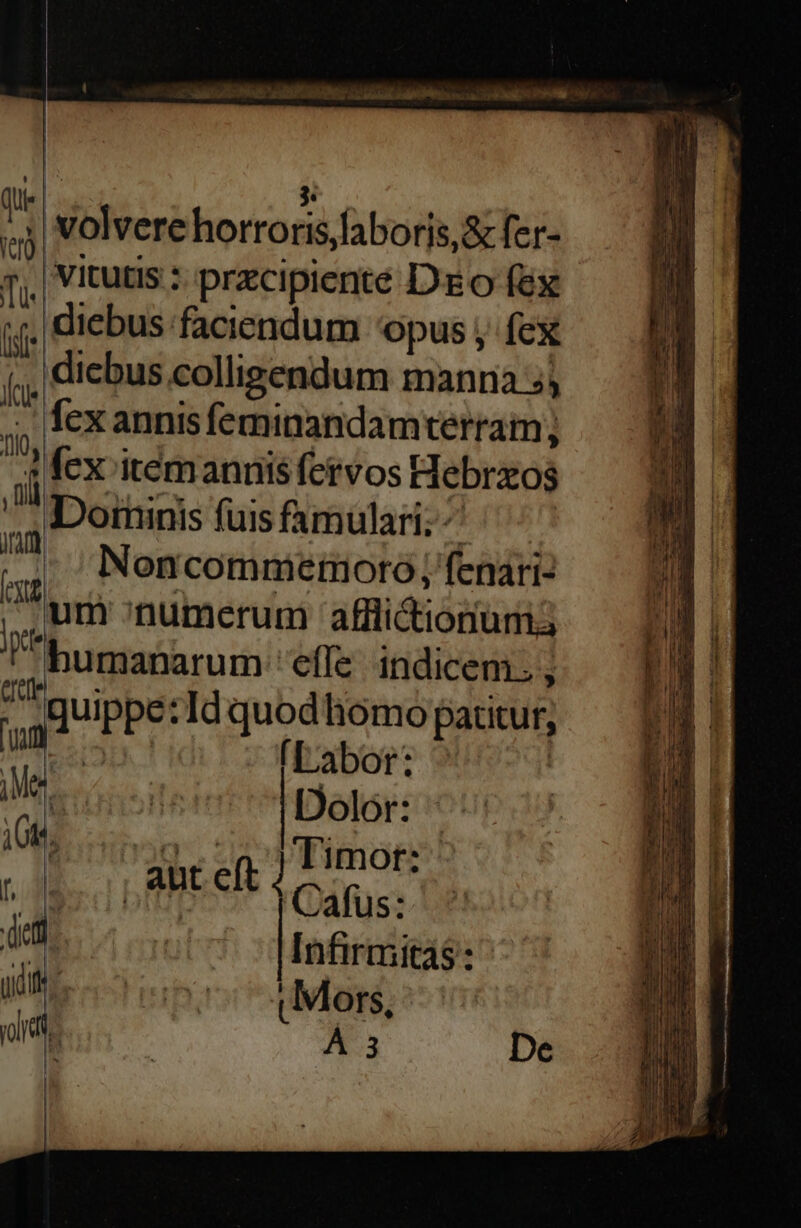 3
volvere horroris, laboris, & ſer-
vitutis: præcipiente Deo ſex
diebus faciendum opus; ſex
diebus colligendum manna;
ſex annis ſeminandam terram;
ſex item annis ſervos Hebræos
Dominis ſuis famulari.
Non commemoro, ſenari-
um numerum afflictionum
humanarum eſſe indicem;
quippe: Id quod homo patitur,
aut eſt
Labor:
Dolor:
Timor:
Caſus:
Infirmitas:
Mors,
A 3 De